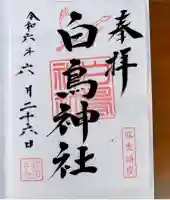 奉拝
白鳥神社
令和六年六月二十六日